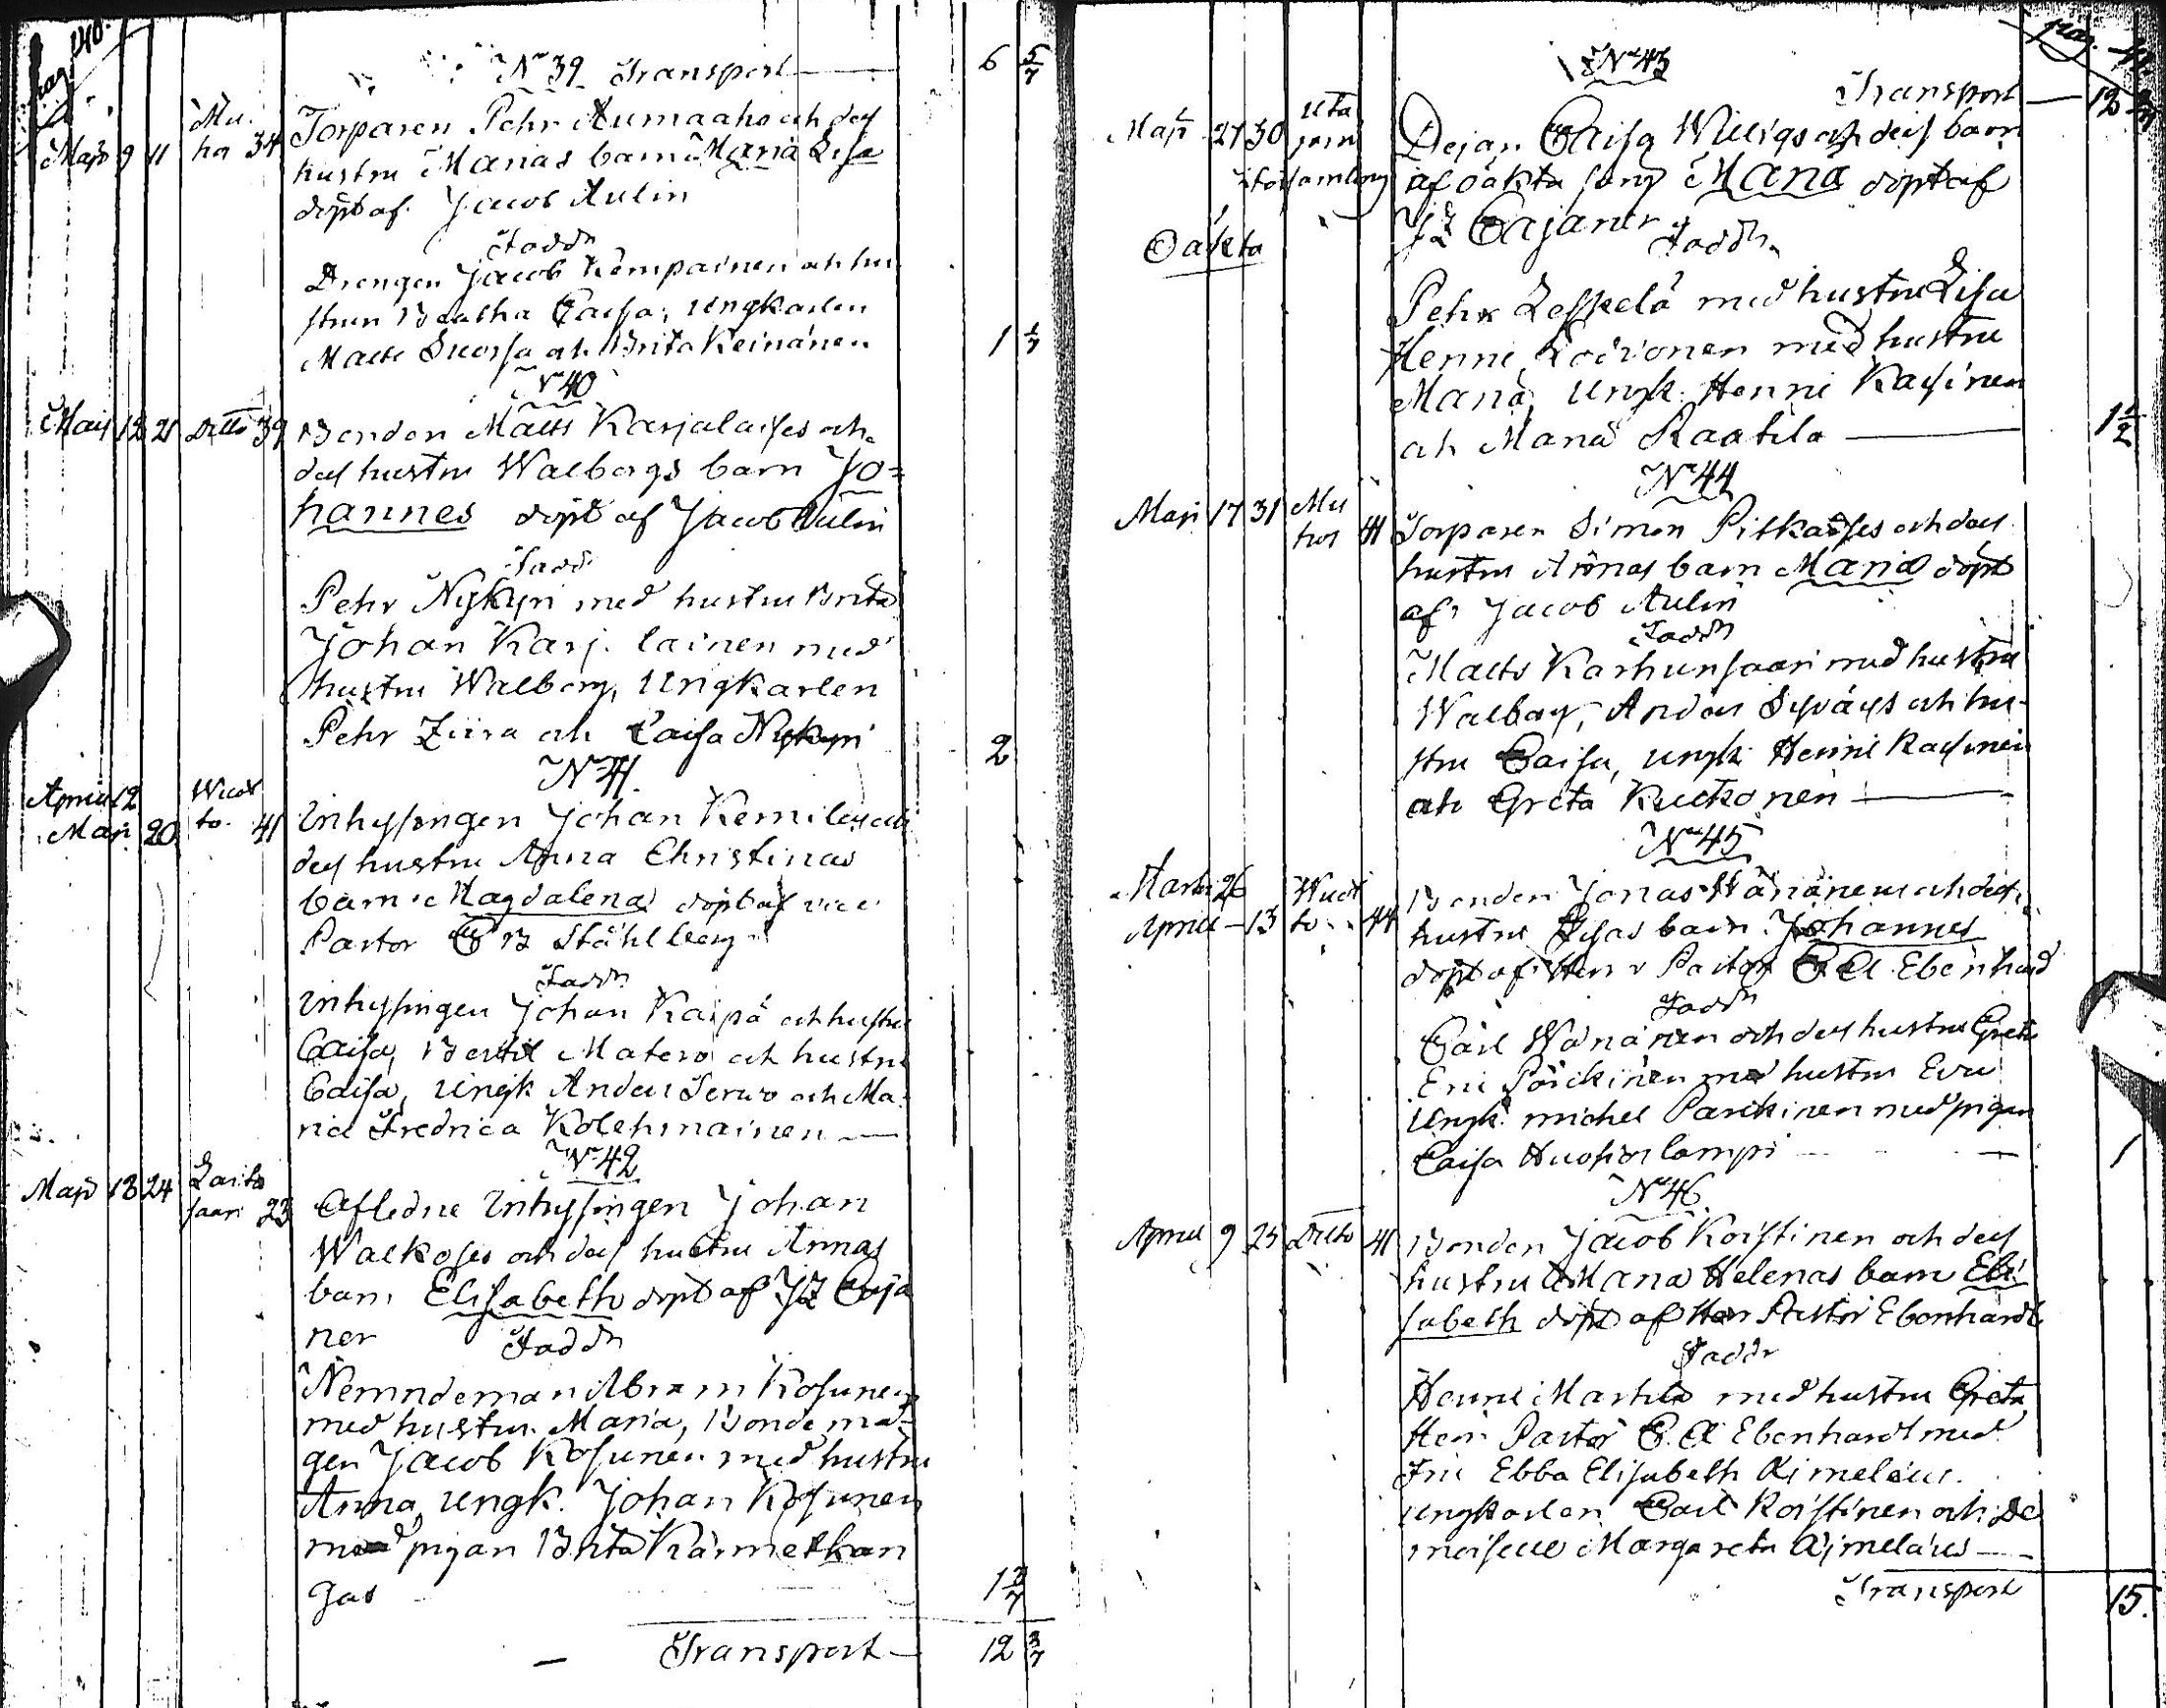 pag. 40.
N° 39 Transport — 6 5/7
Maji 9 11 Mu-
hos 34
Torparen Pehr Aumaaho och des
hustru Marias barn Maria Lisa
döpt af Jacob Aulin
Faddr
Drengen Jacob Kempainen och hu
strun Beatha Caisa, Ungkarlen
Matts Suorsa och Brita Keinänen 1 1/7
N° 40
Maij 12 21 Ditto 39 Bonden Matts Karjalaises och
des hustru Walborgs barn Jo=
hannes döpt af Jacob Aulin
Fadd
Pehr Nykyri med hustru Brita
Johan Karj lainen med
hustru Walborg, Ungkarlen
Pehr Ziira och Caisa Nykyri 2
N° 41
April 12 Wuol
Maji 20 to 41 Inhysingen Johan Kemiles och
des hustru Anna Christinas
barn Magdalena döpt af vice
Pastor C B Ståhlberg
Faddr
Inhysingen Johan Karpä och hustru
Caisa, Bertil Matero och hustru
Caisa, Ungk Anders Serwo och Ma
ria Fredrica Kolehmainen —
N° 42
Maji 13 24 Laito
saari 23 Afledne Inhysingen Johan
Walkoses och des hustru Annas
barn Elisabeth döpt af JZ Caja
ner Faddr
Nemndeman Abram Kosunen
med hustru Maria, Bonde må-
gen Jacob Kosunen med hustru
Anna, Ungk. Johan Kosunen
med pigan Brita Kärmetkan
gas
— Transport — 12 3/7
pag. 41.
N° 43
Transport — 12
Maji 27 30 Uta
som
församling
Dejan Caisa Willigs och des barn
af oäkta säng Maria döpt af
JZ Cajaner Faddr
Oäkta
Pehr Leskelä med hustru Lisa
Henric Rodionen med hustru
Maria, Ungk. Henric Kaysinen
och Maria Raatila — 1 1/2
N° 44
Maji 17 31 Mu
hos 41 Torparen Simon Pitkäses och des
hustru Annas barn Maria döpt
af Jacob Aulin
Faddr
Matts Karhunsaari med hustru
Walborg, Anders Syväys och hu-
stru Caisa, Ungk Henric Kaysinen
och Greta Kuckonen —
N° 45
Martii 26 Wuol
April — 13 to 44 Bonden Jonas Wänänens och des
hustru Lisas barn Johannes
döpt af Herr Pastor C. A Ebenhard
Faddr
Carl Wänänen och des hustru Greta
Eric Pörckinen med hustru Eva
Ungk. Michel Parckinen med pigan
Caisa Huosion lampi — 1
N° 46
April 9 25 Ditto 41 Bonden Jacob Koistinen och des
hustru Maria Helenas barn Eli
sabeth döpt af Herr Pastor Ebenhardt
Faddr
Henric Martila med hustru Greta
Herr Pastor C. A Ebenhardt med
Fru Ebba Elisabeth Aimeläus.
Ungkarlen Carl Koistinen och De
moiselle Margareta Aimeläus —
Transport 15.